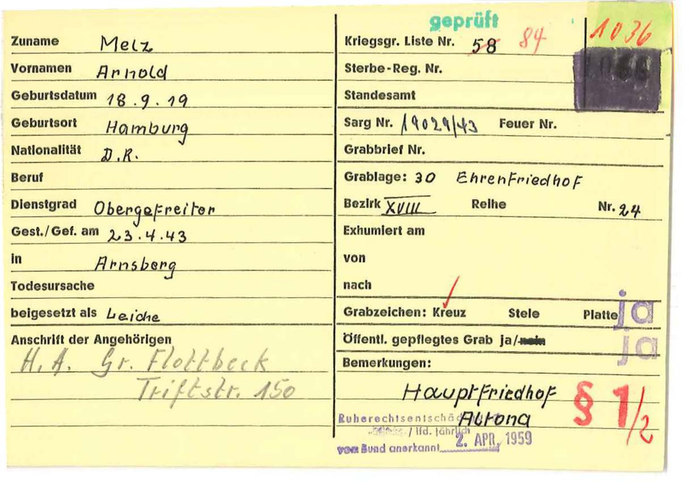 geprüft
1036
Zuname Melz
Vornamen Arnold
Geburtsdatum 18.9.19
Geburtsort Hamburg
Nationalität D.R.
Beruf
Dienstgrad Obergefreiter
Gest./Gef. am 23.4.43
in Arnsberg
Todesursache
beigesetzt als Leiche
Anschrift der Angehörigen
H.A. Gr. Flottbeck
Triftstr. 150
Kriegsgr. Liste Nr. 58 84
Sterbe-Reg. Nr.
Standesamt
Sarg Nr. 19029/43 Feuer Nr.
Grabbrief Nr.
Grablage: 30 Ehrenfriedhof
Bezirk XVIII Reihe Nr. 24
Exhumiert am
von
nach
Grabzeichen: Kreuz Stele Platte ja
Öffentl. gepflegtes Grab ja/nein ja
Bemerkungen:
Hauptfriedhof
Altona
§ 1/2
/ lfd. jährlich
vom Bund anerkannt 2. APR. 1959